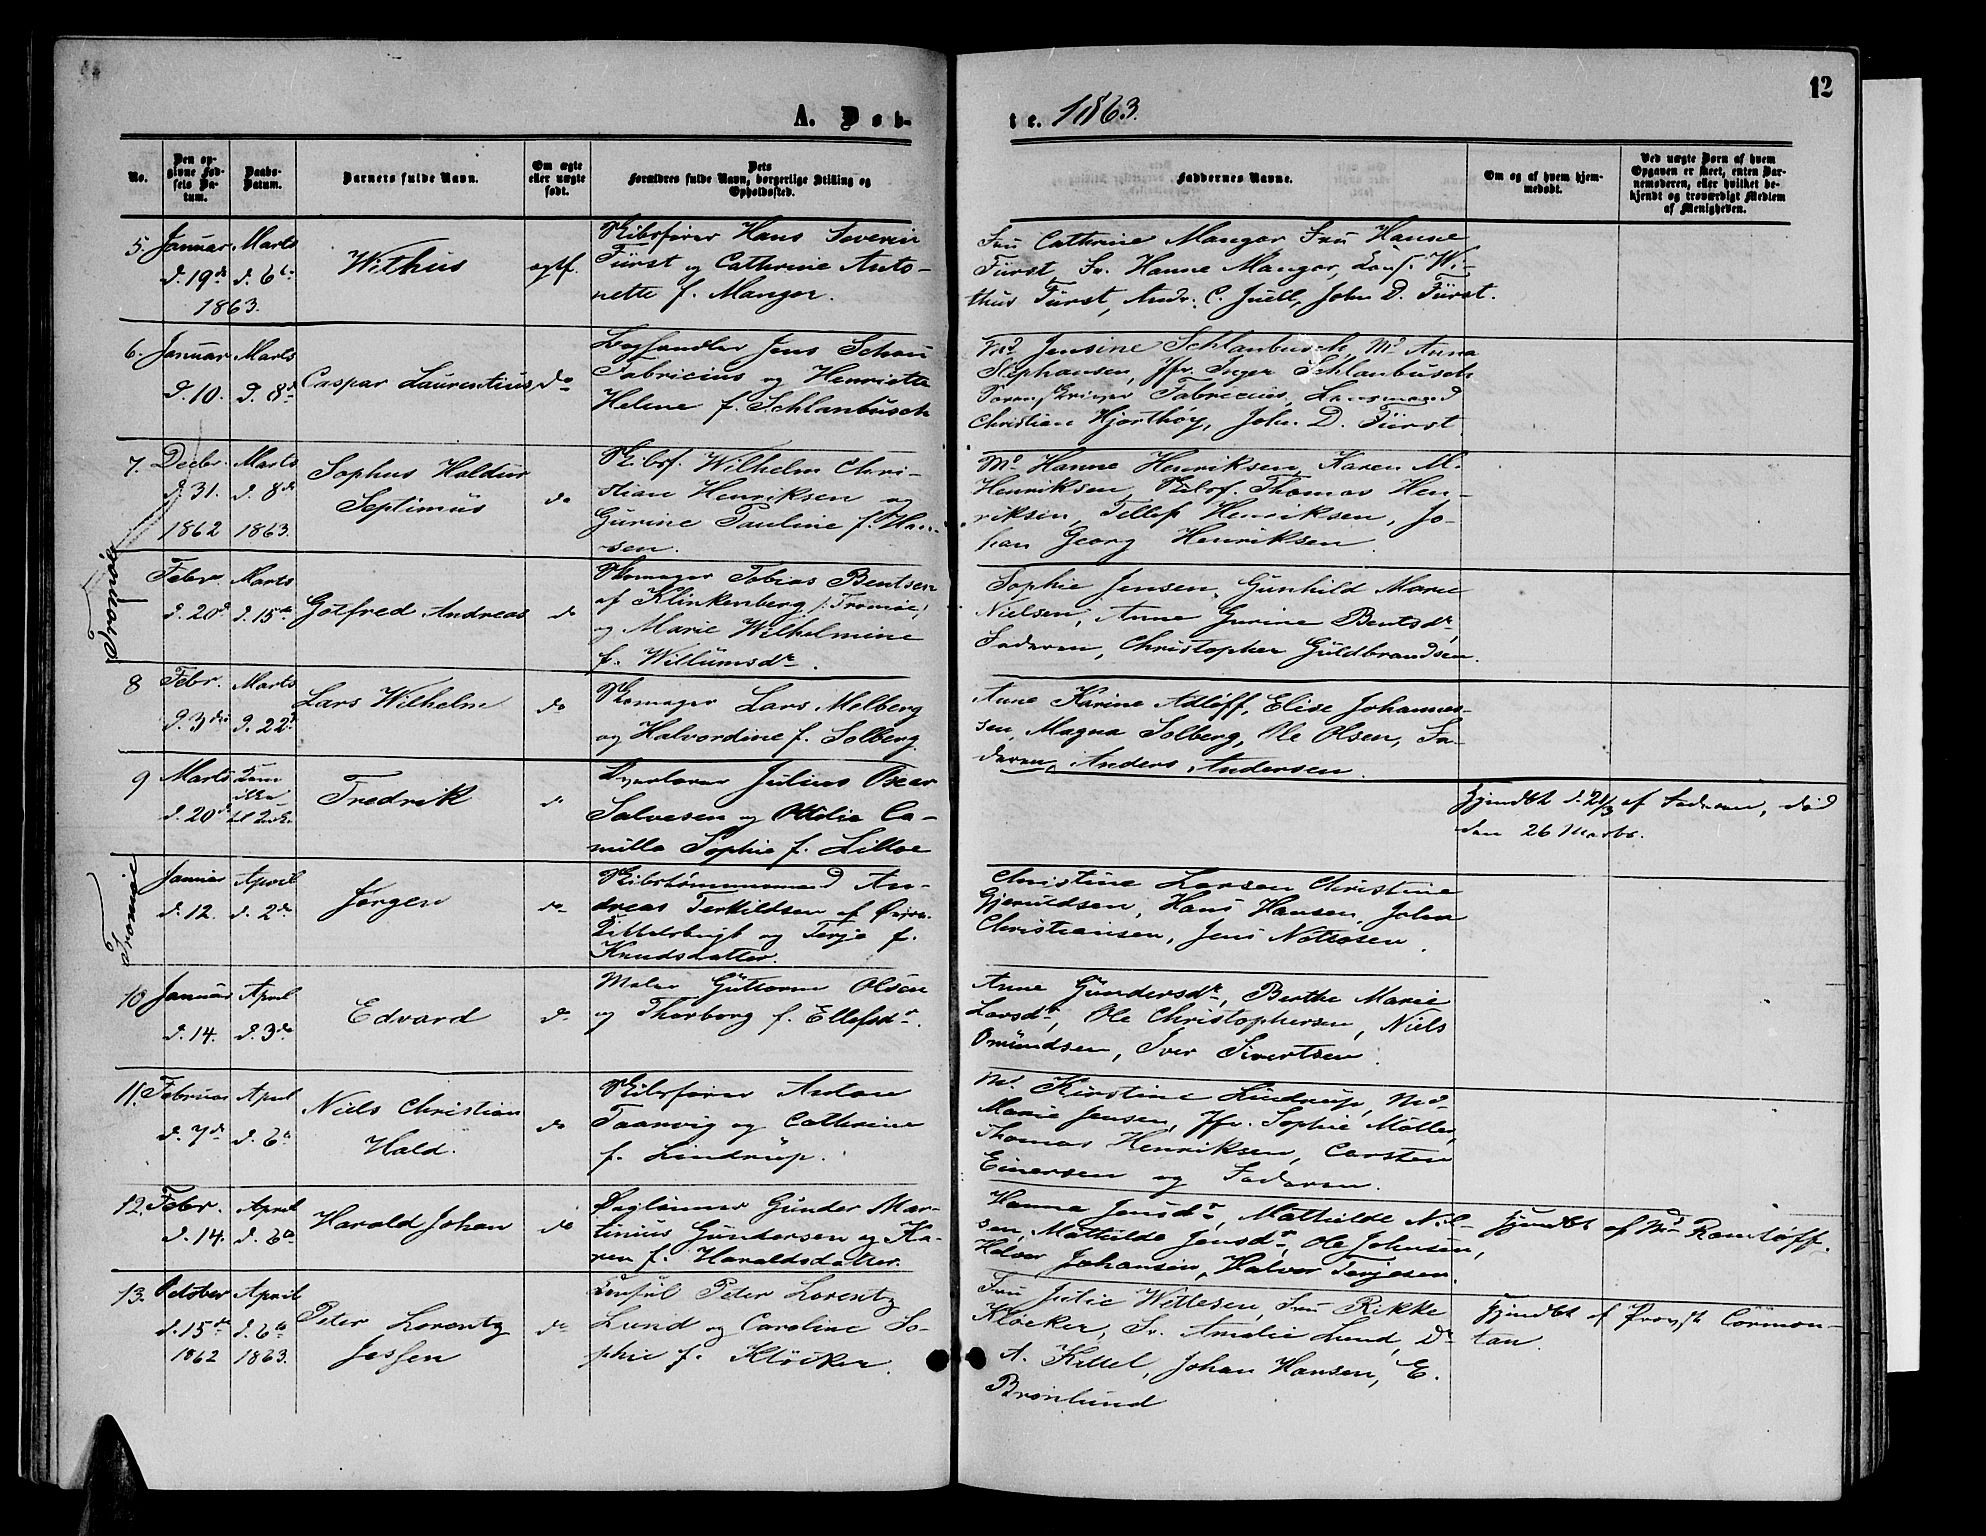 12
A. Døb-
te. 1863.
No.
Den op-
givne Fød-
sels Da-
tum.
Daabs-
Datum.
Barnets fulde Navn.
Om ægte
eller uægte
født.
Dets
Forældres fulde Navn, borgerlige Stilling og
Opholdssted.
Faddernes Navne.
Om og af hvem hjem-
medøbt.
Ved uægte Børn af hvem
Opgaven er skeet, enten Bar-
nemoderen, eller hvilket be-
kjendt og troværdigt Medlem
af Menigheden.
5. Januar
d. 19de
Marts
d. 6te
1863.
Withus
ægtf.
Skibsfører Hans Severin
Fürst og Cathrine Anto-
nette f. Mangor.
Fru Cathrine Mangor Fru Hanne
Fürst, Fr. Hanne Mangor, Cons. Wi-
thus Fürst, Andr. C. Juell, John D. Fürst.
6. Januar
d. 10.
Marts
d. 8de
Caspar Laurentius
do
Boghandler Jens Schou
Fabricius og Henriette
Helene f. Schlanbusch
Md Jensine Schlanbusch, Md Anna
Stephansen, Jfr. Inger Schlanbusch
Fabricius, Lensmand
Christian Hjorthøy, John D. Fürst
7. Decbr.
d. 31.
1862
Marts
d. 8de
1863.
Sophus Haldur
Septimus
do
Skibsf. Wilhelm Chri-
stian Henriksen og
Gurine Pauline f. Han-
sen.
Md Hanne Henriksen, Karen M.
Henriksen, Skibsf. Thomas Hen-
riksen, Tellef Henriksen, Jo-
han Georg Henriksen.
Febr.
d. 20de
Marts
d. 15de
Gotfred Andreas
do
Skomager Tobias Bentsen
af Klinkenberg, Tromøe,
og Marie Wilhelmine
f. Willumsdr.
Sophie Jensen, Gunhild Marie
Nielsen, Anne Gurine Bentsdr,
Faderen, Christopher Guldbrandsen.
8 Febr.
d. 3die
Marts
d. 22d
Lars Wilhelm
do
Skomager Lars Melberg
og Halvordine f. Solberg.
Anne Karine Adløff, Elise Johannes-
sen, Magna Solberg, Ole Olsen, Fa-
deren, Anders Andersen.
9 Marts
d. 20de
Kom
ikke
til Kirke
Fredrik
do
Julius Oscar
Salvesen og Othilie Ca-
milla Sophie f. Lilloe
Hjemdøbt d. 21/3 af Faderen, død
den 26 Marts.
Januar
d. 12.
April
d. 2de
Jørgen
do
Skibstømmermand An-
dreas Terkildsen af
og Terje f.
Knudsdatter.
Christine Larsen Christine
Gjeruldsen, Hans Hansen, John
Christiansen, Jens
10 Januar
d. 14.
April
d. 3de
Edvard
do
Maler Guttorm Olsen
og Thorborg f. Ellefsdr.
Anne Gundersdr, Berthe Marie
Larsdr, Ole Christophersen, Niels
Omundsen, Iver Sivertsen.
11. Februar
d. 7de
April
d. 6te
Niels Christian
Hald.
do
Skibsfører Anton
Taarvig og Cathrine
f. Lindrup.
Md Kirstine Lindrup, Md
Marie Jensen, Jfr. Sophie Møller,
Thomas Henriksen, Carsten
Einersen og Faderen.
12. Febr.
d. 14.
April
d. 6te
Harald Johan
do
Daglønner Gunder Mar-
tinius Gundersen og Ka-
ren f. Haraldsdatter.
Hanna Jensdr, Mathilde Niel-
sen, Mathilde Jensdr, Ole Johnsen,
Halvor Johansen, Halvor Terjesen.
Hjemdøbt af Md Ramløff.
13. October
d. 15de
1862
April
d. 6te
1863.
Peter Lorentz
Jessen
do
Consul Peter Lorentz
Lund og Caroline So-
phie f. Kløcker.
Fru Julie Willesen, Fru Rikke
Kløcker, Fr. Amalie Lund, Dr
A. Kittel, Johan Hansen, E.
Brønlund
Hjemdøbt af Provst Cørmon-
tan.